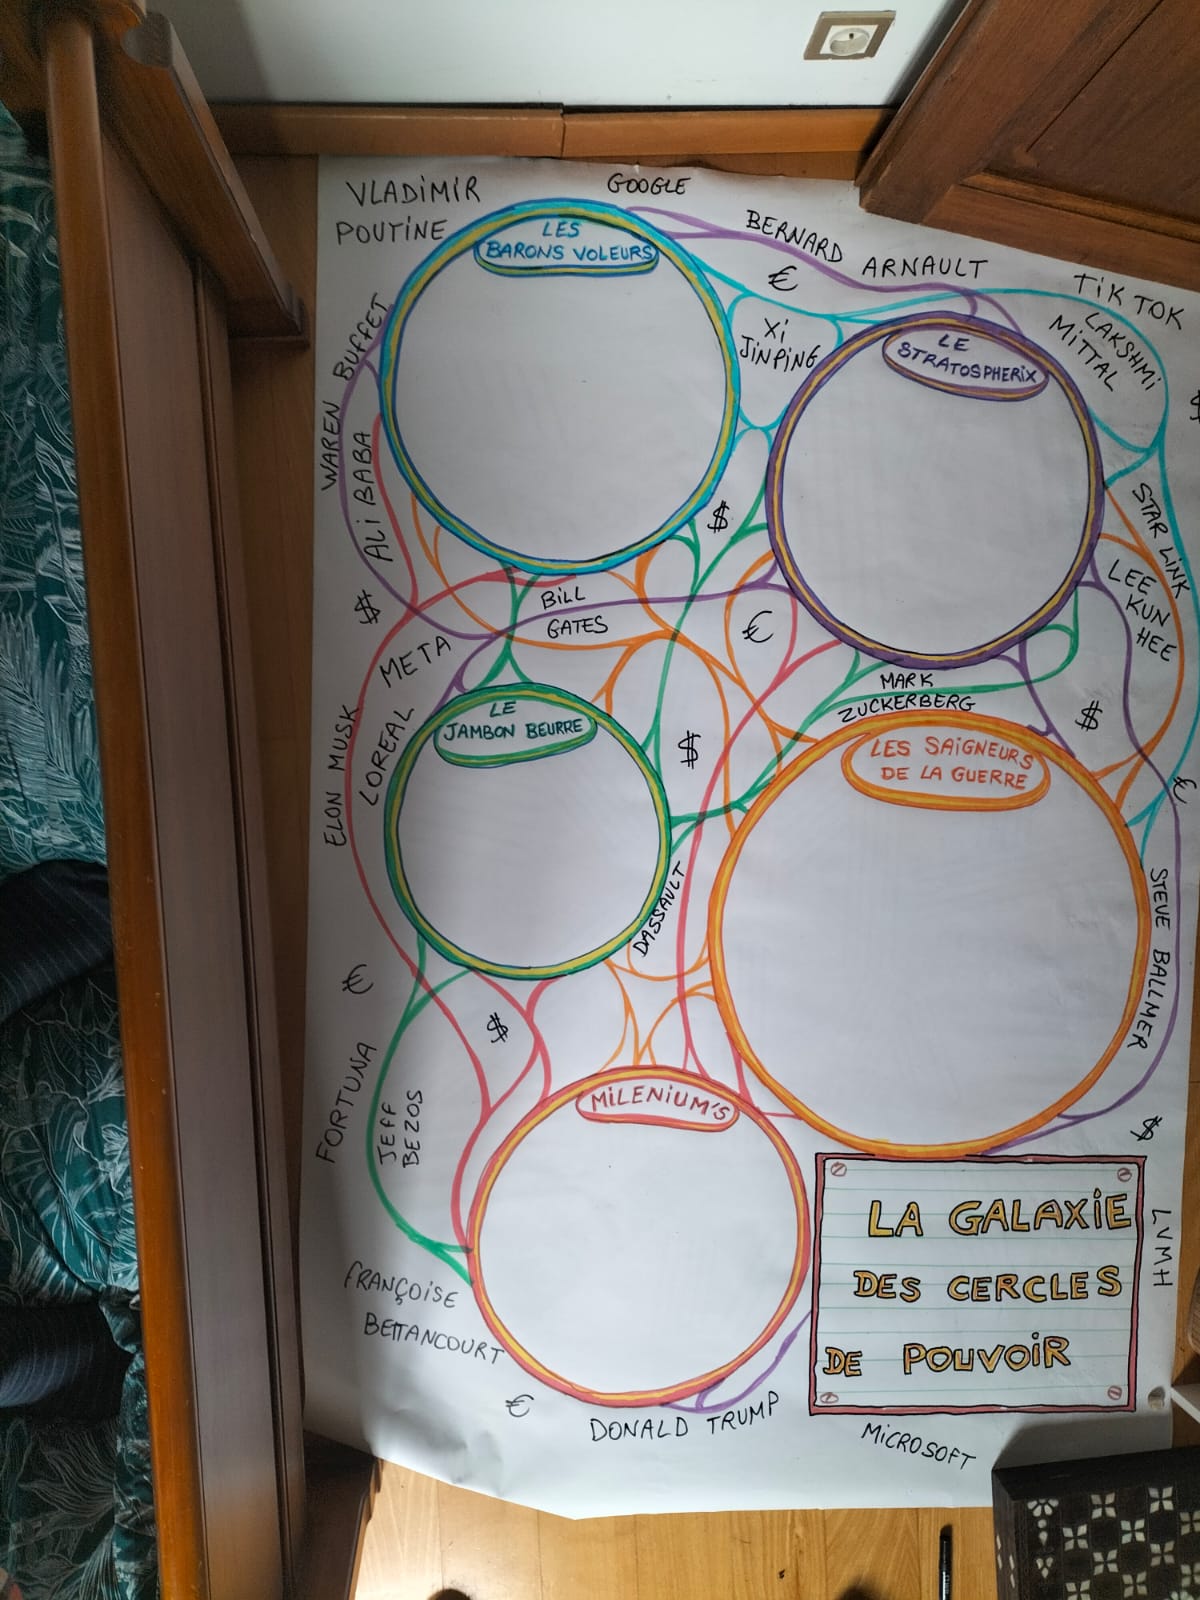 VLADIMIR
POUTINE
GOOGLE
BERNARD ARNAULT
TIK TOK
LES
BARONS VOLEURS
€
XI
JINPING
LE
STRATOSPHERIX
LAKSHMI
MITTAL
$
WAREN BUFFET
ALI BABA
$
STAR LINK
LEE
KUN
HEE
$
BILL
GATES
€
META
MARK
ZUCKERBERG
$
LOREAL
ELON MUSK
LE
JAMBON BEURRE
$
LES SAIGNEURS
DE LA GUERRE
€
DASSAULT
STEVE BALLMER
€
$
FORTUNA
JEFF
BEZOS
MILENIUM'S
$
LA GALAXIE
DES CERCLES
DE POUVOIR
LVMH
FRANÇOISE
BETTANCOURT
€
DONALD TRUMP
MICROSOFT